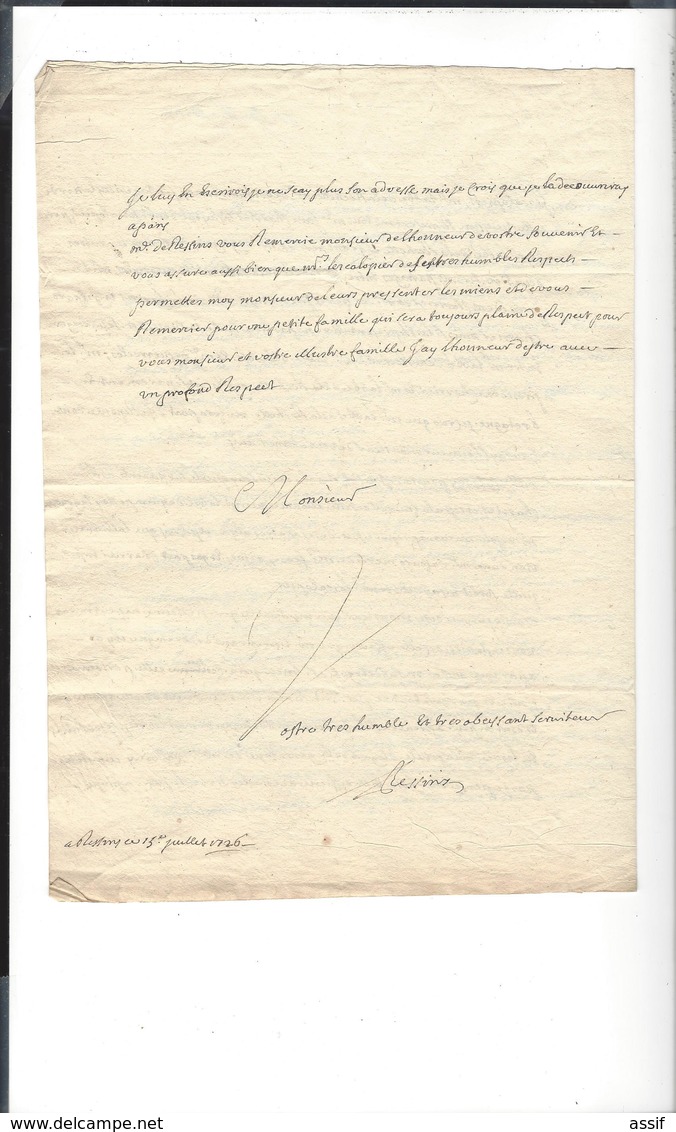 je luy en escrivois je ne scay plus son adresse mais je crois que je la decouvriray
a paris
mr. de Ressins vous Remercie monsieur de lhonneur de vostre souvenir Et
vous assure aussi bien que mrs. les colopier de ses tres humbles Respects
permettes moy monsieur de leurs pressenter les miens et de vous
Remercier pour une petite famille qui sera toujours plaine de Respect pour
vous monsieur et vostre illustre famille Jay lhonneur destre avec
un profond Respect
Monsieur
Vostre tres humble Et tres obeissant serviteur
Ressins
a Ressins ce 15e juillet 1726
delcampe.net
assif